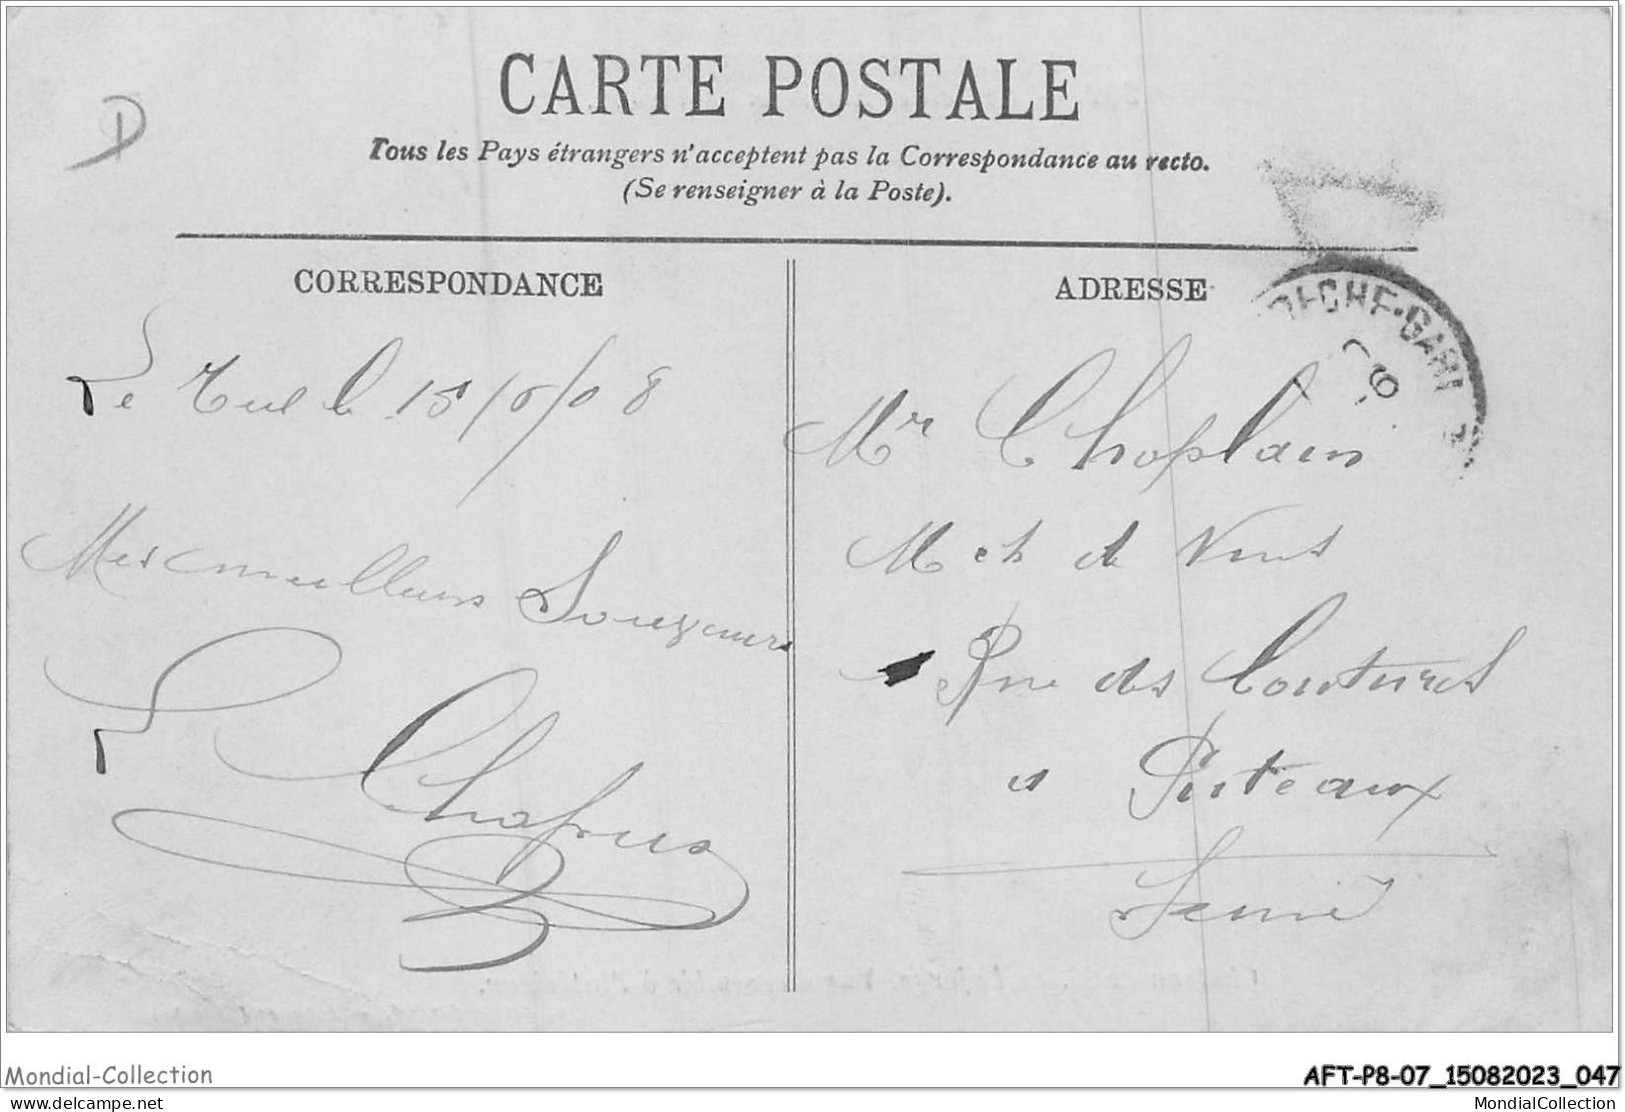 D
CARTE POSTALE
Tous les Pays étrangers n'acceptent pas la Correspondance au recto.
(Se renseigner à la Poste).
CORRESPONDANCE
Le Teil le 15/6/08
Mes meilleurs
ADRESSE
Mr Choplain
Mch de Vins
Rue des Coutures
a Puteaux
Seine
Mondial-Collection
AFT-P8-07_15082023_047
www.delcampe.net
MondialCollection